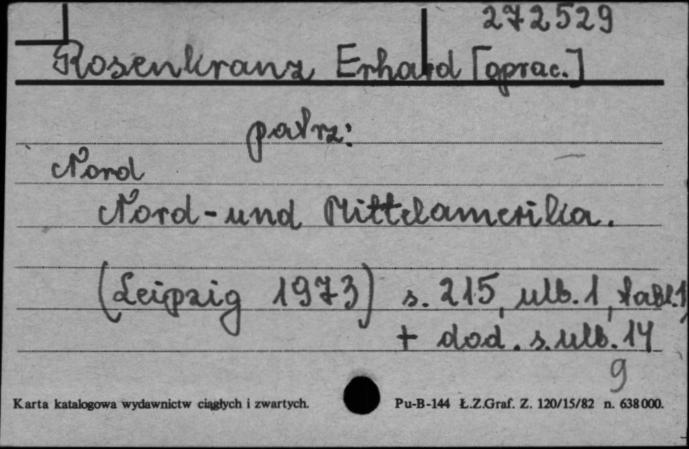 272529
Rosenkranz Erhard [oprac.]
patrz:
Nord
Nord-und Mittelamerika.
(Leipzig 1973) s. 215, ulb. 1, tabl. 1
+ dod. s. ulb. 14
9
Karta katalogowa wydawnictw ciągłych i zwartych. Pu-B-144 Ł.Z.Graf. Z. 120/15/82 n. 638000.